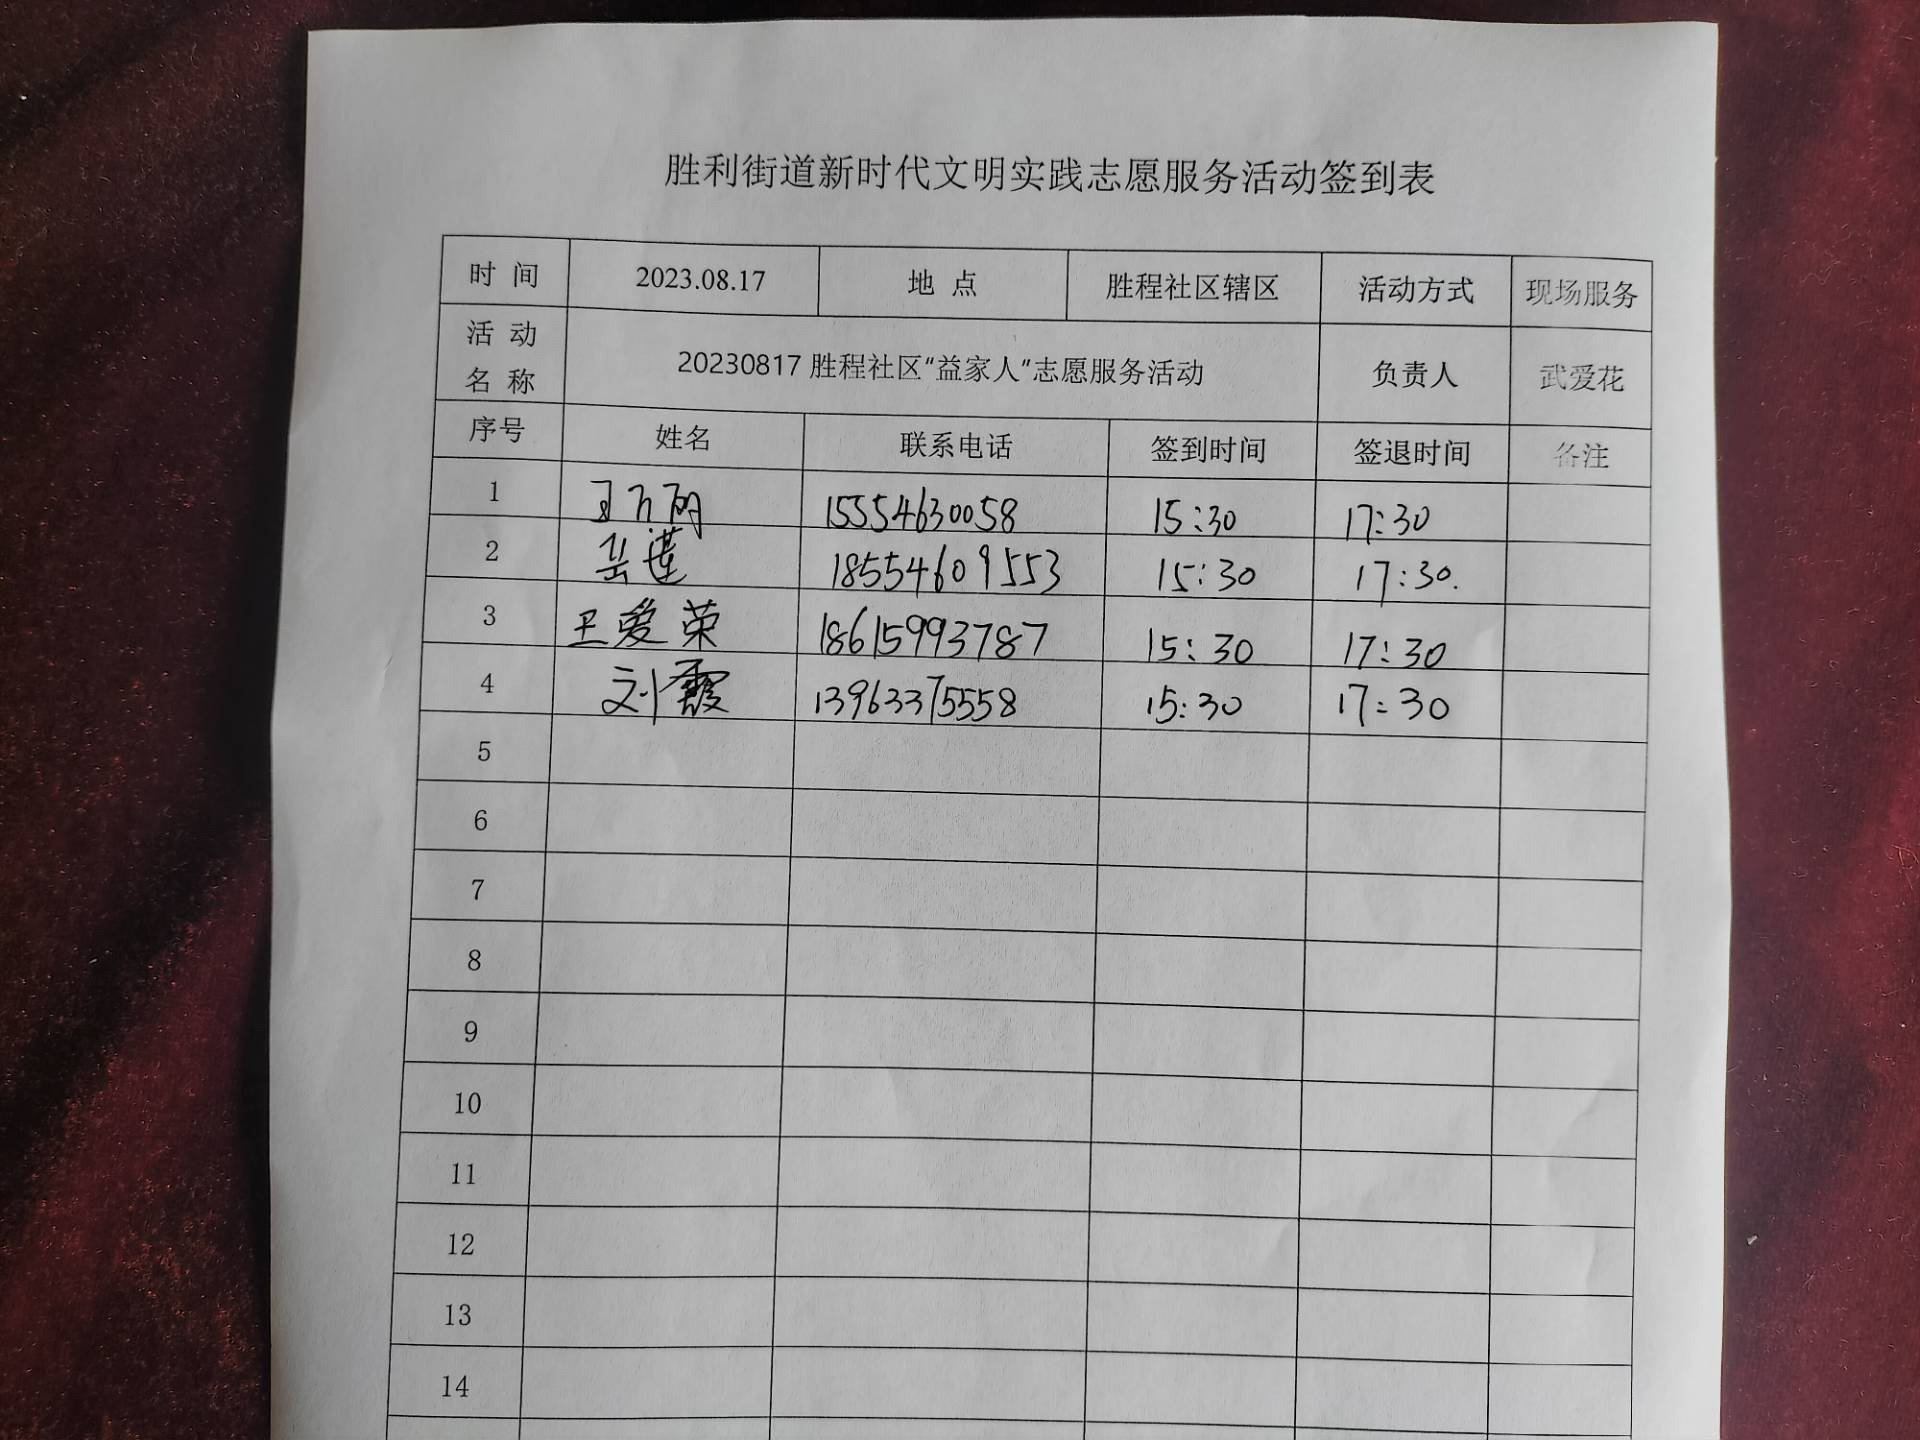 胜利街道新时代文明实践志愿服务活动签到表
时 间 2023.08.17 地 点 胜程社区辖区 活动方式 现场服务
活 动
名 称 20230817 胜程社区“益家人”志愿服务活动 负责人 武爱花
序号 姓名 联系电话 签到时间 签退时间 备注
1 15554630058 15:30 17:30
2 岳莲 18554609553 15:30 17:30.
3 王爱荣 18615993787 15:30 17:30
4 刘霞 13963375558 15:30 17:30
5
6
7
8
9
10
11
12
13
14